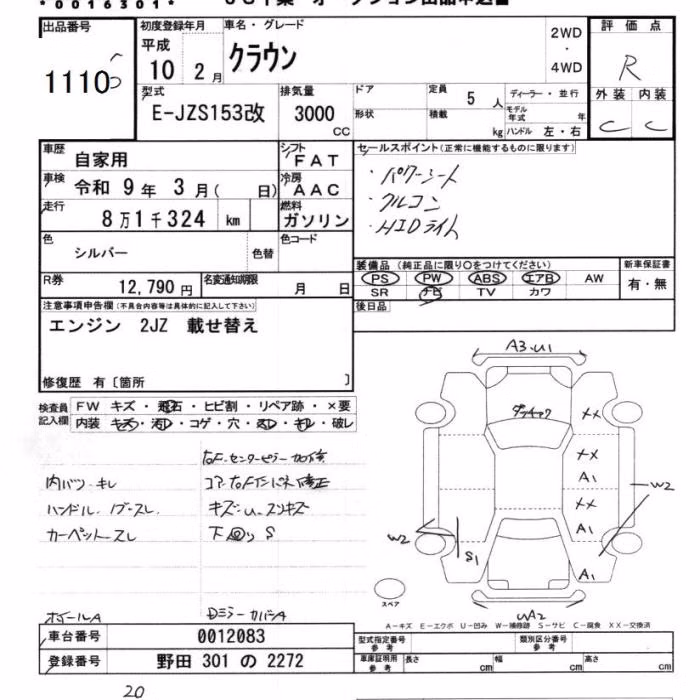 *0016301*
出品番号
1110
初度登録年月
平成
10 2月
車名・グレード
クラウン
2WD
・
4WD
評価点
R
外装 内装
C C
型式
E-JZS153改
排気量
3000
CC
ドア
形状
定員
5 人
積載
kg
ディーラー・並行
モデル年式
年
ハンドル 左・右
車歴
自家用
車検
令和 9年 3月( 日)
走行
8万1千324 km
シフト
FAT
冷房
AAC
燃料
ガソリン
色
シルバー
色替
色コード
R券
12,790円
名変通知期限
月 日
セールスポイント(正常に機能するものに限ります)
・パワーシート
・クルコン
・HIDライト
装備品(純正品に限り○をつけてください)
PS PW ABS エアB AW
SR ナビ TV カワ
新車保証書
有・無
後日品
注意事項申告欄(不具合内容等は具体的に記入して下さい)
エンジン 2JZ 載せ替え
修復歴 有〔箇所 〕
検査員
記入欄
FW キズ・飛石・ヒビ割・リペア跡・×要
内装 キズ・汚レ・コゲ・穴・スレ・キレ・破レ
内バツ キレ
ハンドル・ノブ スレ
カーペット スレ
ホイールA
右F.センターピラー
コア
キズ・U・スリキズ
下回り S
Dミラーカバー A
A3・U1
XX
XX
A1
XX
A1
A1
W2
W2
S1
WA2
スペア
A-キズ E-エクボ U-凹み W-補修跡 S-サビ C-腐食 XX-交換済
車台番号
0012083
登録番号
野田 301 の 2272
型式指定番号
参考
類別区分番号
参考
車庫証明用
参考
長さ cm
幅 cm
高さ cm
20